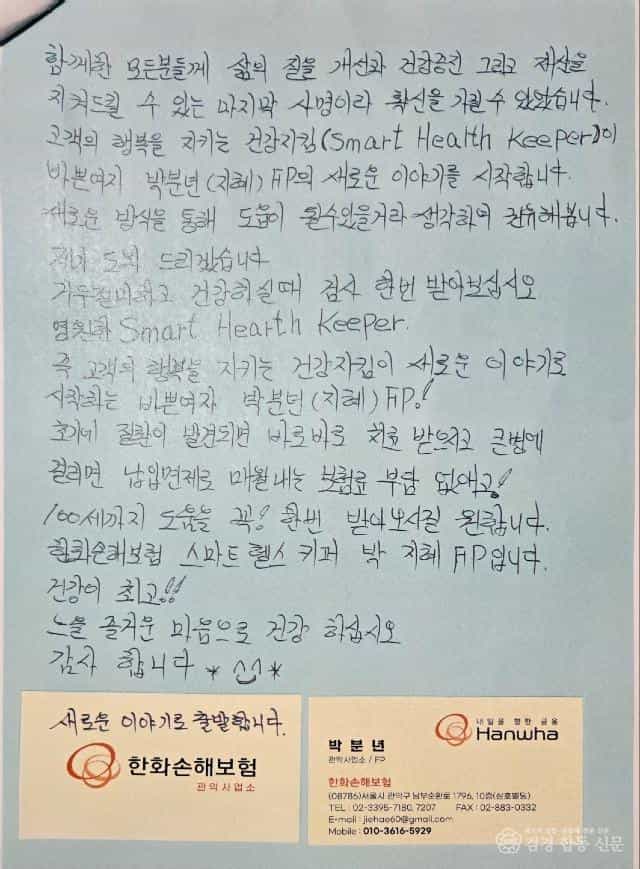 함께한 모든분들께 삶의 질을 개선과 건강증진 그리고 재산을
지켜드릴 수 있는 마지막 사명이라 확신을 가질수 있었습니다.
고객의 행복을 지키는 건강지킴(Smart Health Keeper)이
바쁜여자 박분년(지혜)FP의 새로운 이야기를 시작합니다.
새로운 방식을 통해 도움이 될수있을거라 생각하며 권유해봅니다.
도움 드리겠습니다
건강하실때 검사 한번 받아보십시오
영원한 Smart Hearth Keeper.
즉 고객의 행복을 지키는 건강지킴이 새로운 이야기로
시작하는 바쁜여자 박분년(지혜)FP!
초기에 질환이 발견되면 바로바로 치료 받으시고 큰병에
걸리면 납입면제로 매월내는 보험료 부담 없애고!
100세까지 도움을 꼭! 한번 받아보시길 원합니다.
한화손해보험 스마트헬스키퍼 박 지혜 FP입니다.
건강이 최고!!
늘 즐거운 마음으로 건강 하십시오
감사 합니다
새로운 이야기로 출발합니다.
한화손해보험
관악사업소
내일을 향한 금융
Hanwha
박 분 년
관악사업소 / FP
한화손해보험
(08786)서울시 관악구 남부순환로 1796, 10층(삼호빌딩)
TEL : 02-3395-7180, 7207 FAX : 02-883-0332
E-mail : jiehae60@gmail.com
Mobile : 010-3616-5929
검경 합동 신문